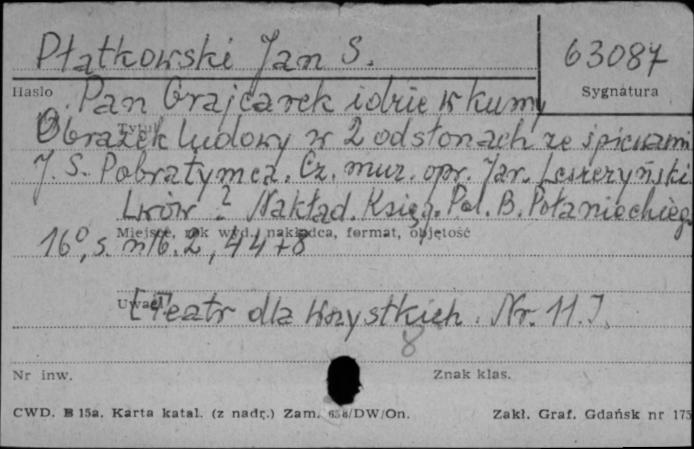 Płatkowski Jan S.
63087
Hasło
Sygnatura
Pan Grajcarek idzie w kumy
Obrazek ludowy w 2 odsłonach ze śpiewam
J. S. Pobratymca. Cz. muz. opr. Jar. Leszczyński
Lwów ? Nakład. Księg. Pol. B. Połanieckieg.
Miejsce, rok wyd., nakładca, format, objętość
16°, s. 2, 44+8
Uwagi
[Teatr dla Wszystkich. Nr. 11.]
8
Nr inw.
Znak klas.
CWD. B 15a. Karta katal. (z nadr.) Zam. /DW/On.
Zakł. Graf. Gdańsk nr 175